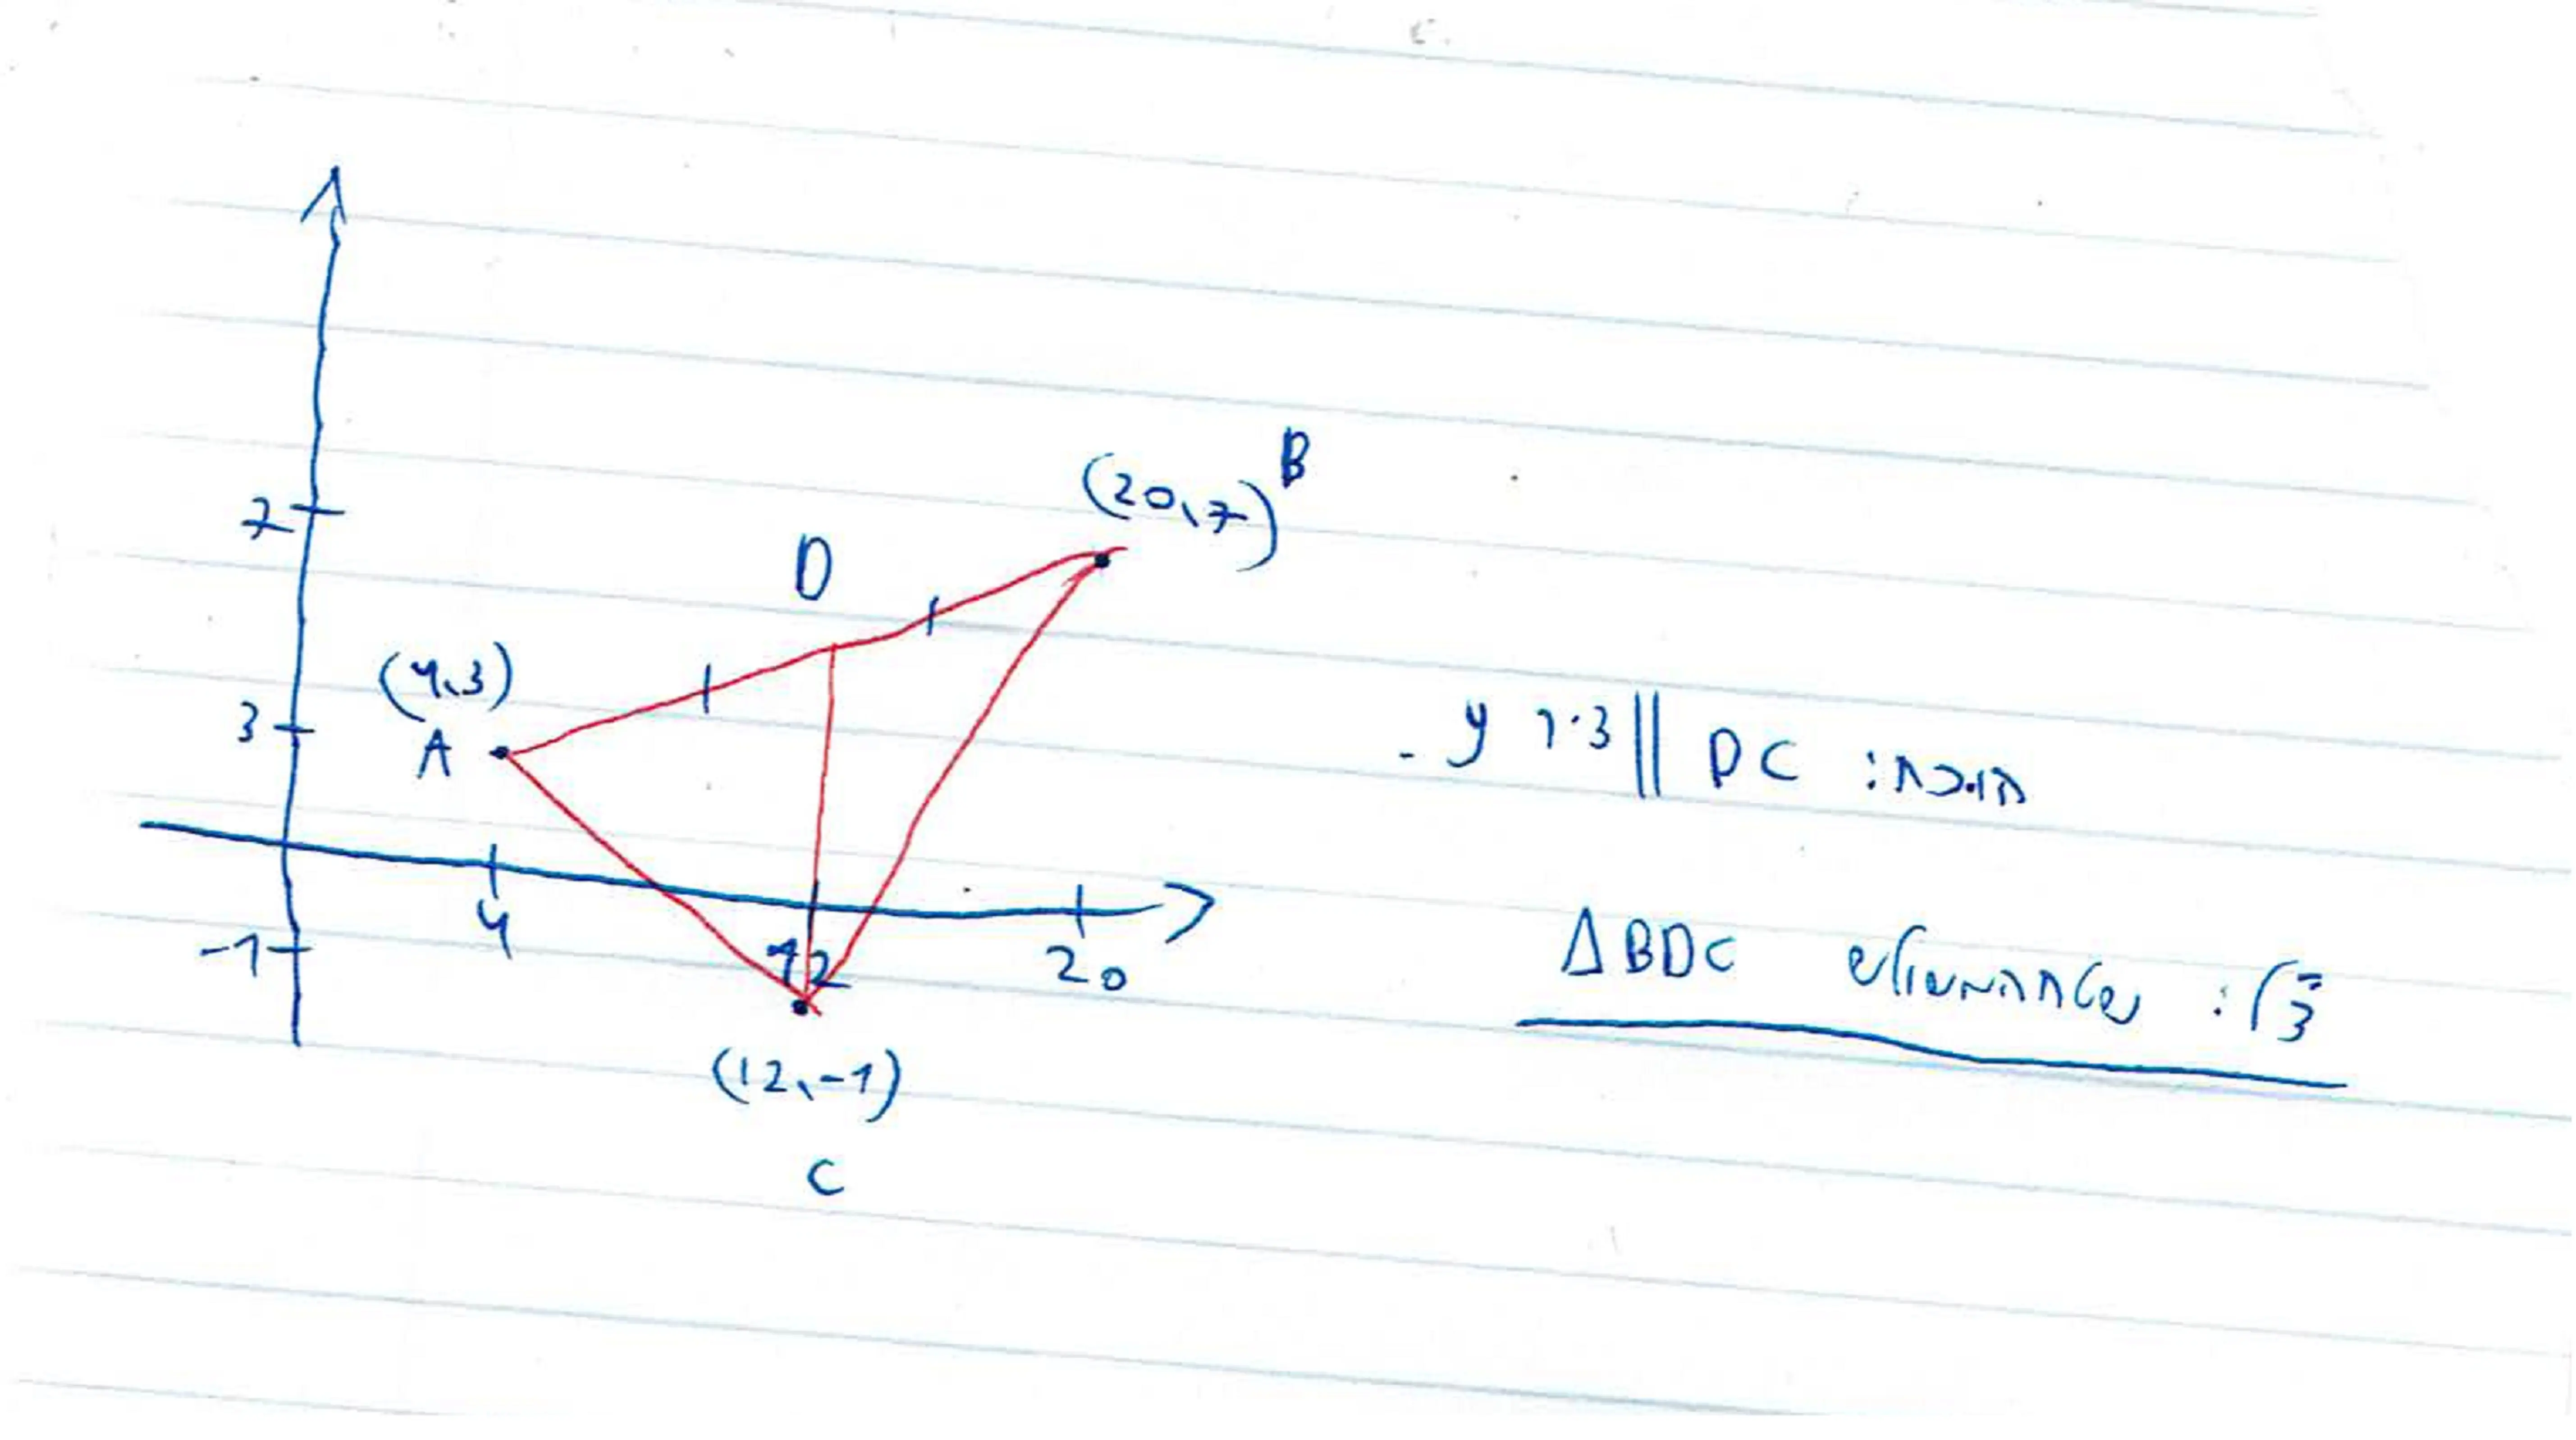 B
(20,7)
7
D
(4,3)
3
A
הוכח: DC || ציר y.
4
-1
12
20
ΔBDC
(12,-1)
C